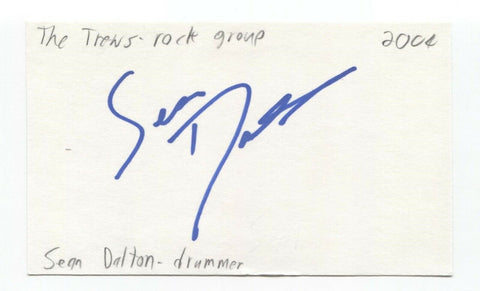 The Trews - rock group 2004
Sean Dalton
Sean Dalton - drummer